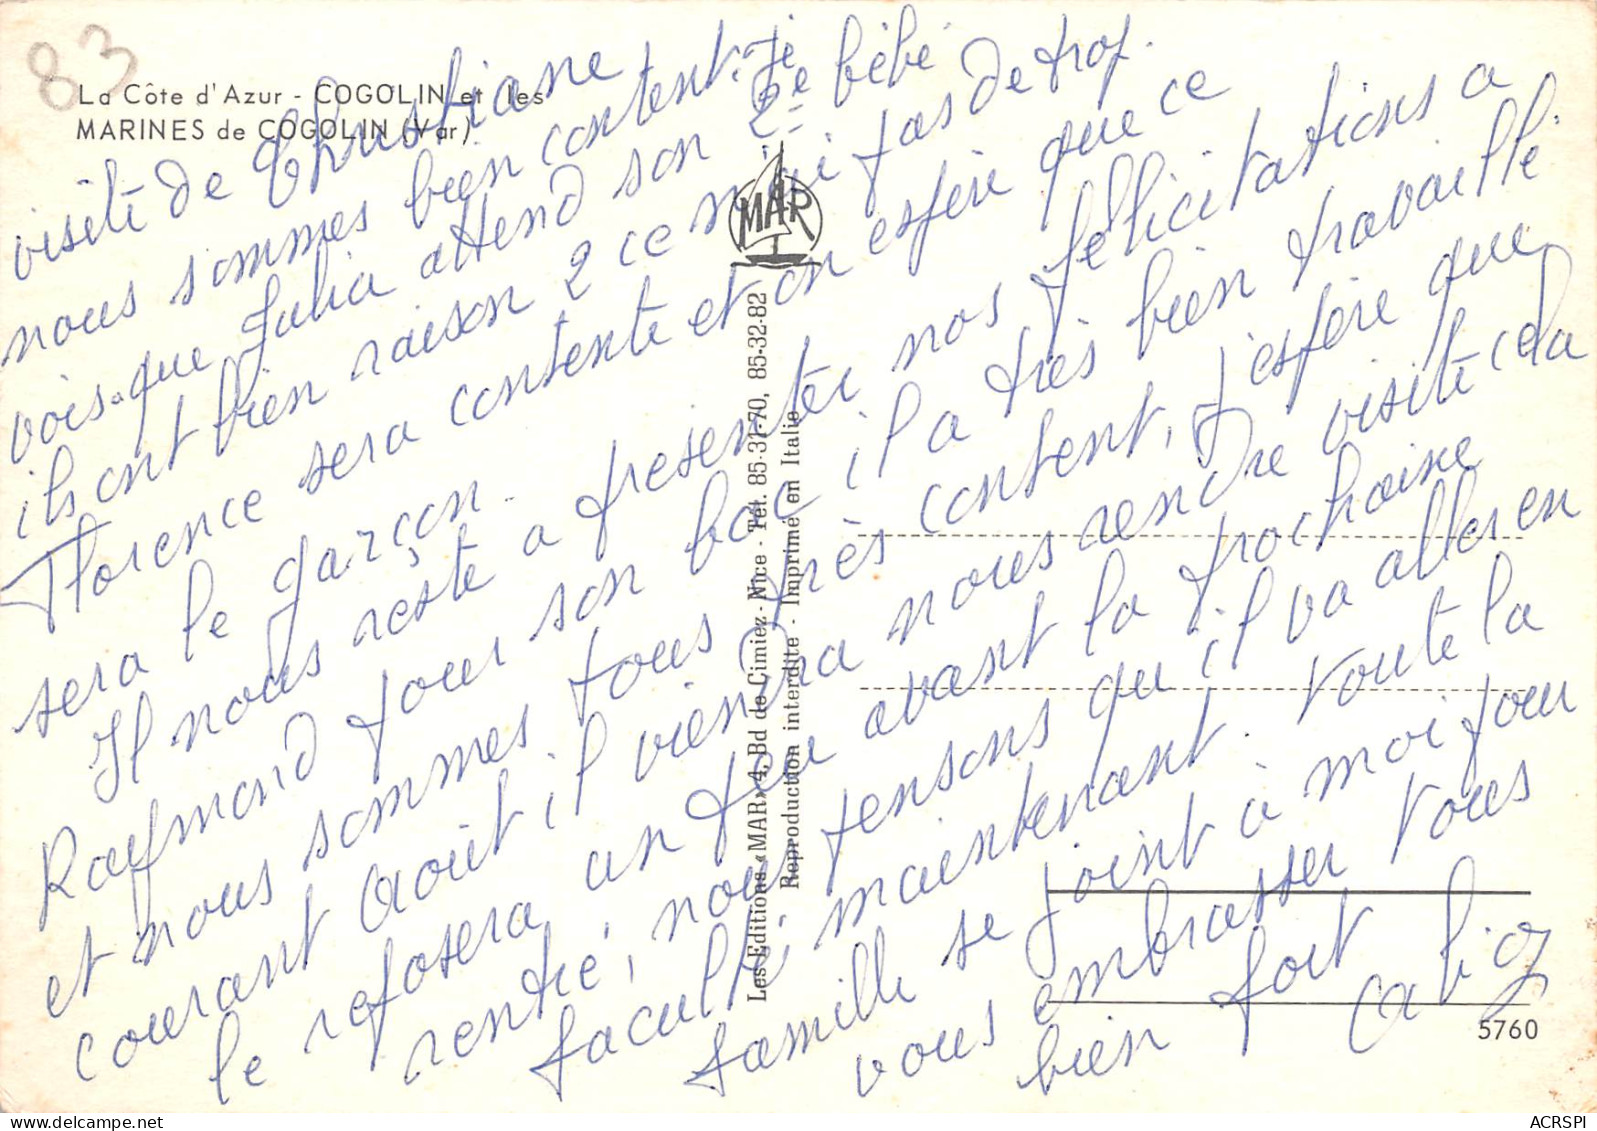 83
La Côte d'Azur - COGOLIN et les
MARINES de COGOLIN (Var)
visite de Christiane
nous sommes bien content. Je
vois que Julia attend son 2e bébé
ils ont bien raison 2 ce n'est pas de trop.
Florence sera contente et on espère que ce
sera le garçon.
Il nous reste a presenter nos félicitations a
Raymond pour son bac il a très bien travaillé.
et nous sommes tous très content, j'espère que
courant Août il viendra nous rendre visite cela
le reposera un peu avant la prochaine
rentré, nous pensons qu'il va aller en
faculté maintenant. Toute la
famille se joint à moi pour
vous embrasser tous
bien fort
MAR
Les Editions «MAR» 4, Bd de Cimiez - Nice - Tél. 85-31-70, 85-32-82
Reproduction interdite - Imprimé en Italie
5760
ACRSPI